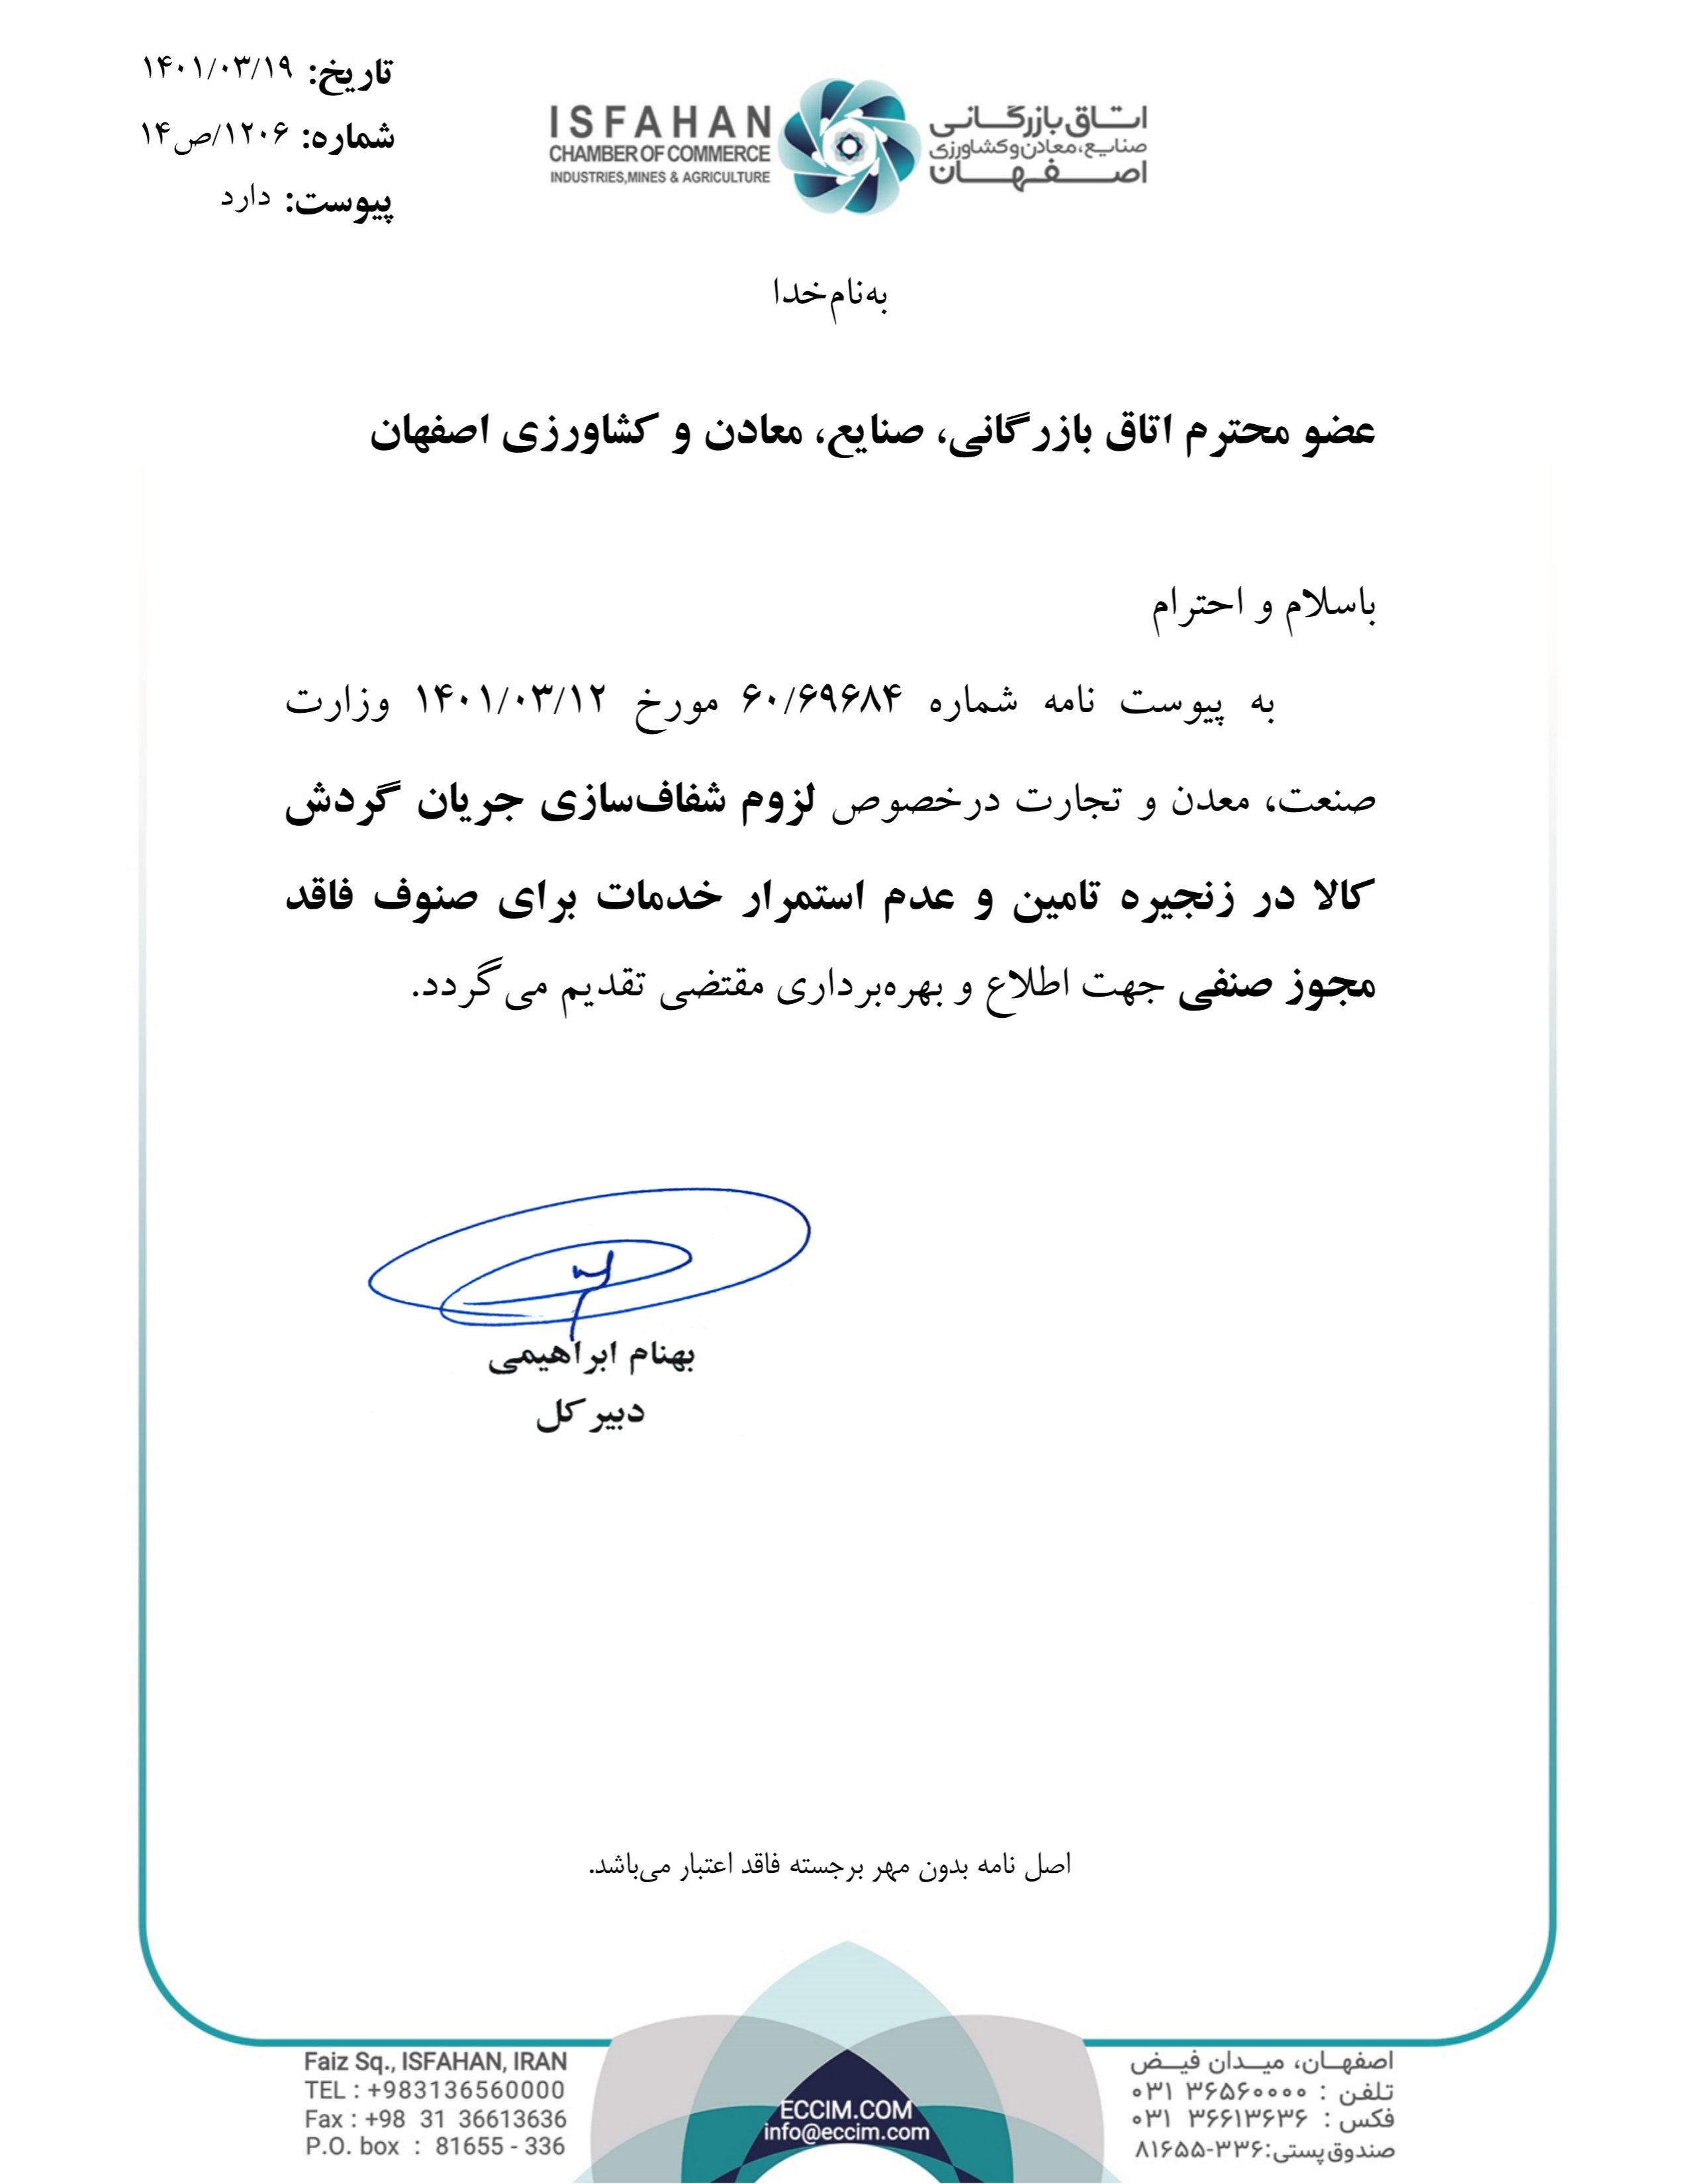 تاریخ: ۱۴۰۱/۰۳/۱۹
شماره: ۱۲۰۶/ص۱۴
پیوست: دارد
ISFAHAN
CHAMBER OF COMMERCE
INDUSTRIES,MINES & AGRICULTURE
اتاق بازرگانی
صنایع،معادن و کشاورزی
اصفهان
به‌نام‌خدا
عضو محترم اتاق بازرگانی، صنایع، معادن و کشاورزی اصفهان
باسلام و احترام
به پیوست نامه شماره ۶۰/۶۹۶۸۴ مورخ ۱۴۰۱/۰۳/۱۲ وزارت
صنعت، معدن و تجارت درخصوص لزوم شفاف‌سازی جریان گردش
کالا در زنجیره تامین و عدم استمرار خدمات برای صنوف فاقد
مجوز صنفی جهت اطلاع و بهره‌برداری مقتضی تقدیم می‌گردد.
بهنام ابراهیمی
دبیر کل
اصل نامه بدون مهر برجسته فاقد اعتبار می‌باشد.
Faiz Sq., ISFAHAN, IRAN
TEL : +983136560000
Fax : +98 31 36613636
P.O. box : 81655 - 336
ECCIM.COM
info@eccim.com
اصفهان، میدان فیض
تلفن : ۳۶۵۶۰۰۰۰ ۰۳۱
فکس : ۳۶۶۱۳۶۳۶ ۰۳۱
صندوق پستی:۳۳۶-۸۱۶۵۵